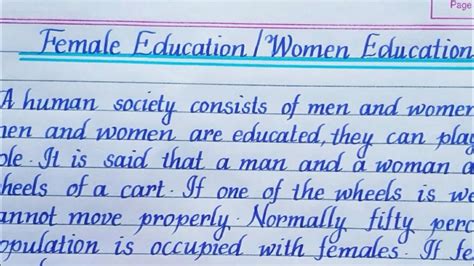 Page
Female Education/Women Education
A human society consists of men and women
men and women are educated, they can play
ole. It is said that a man and a woman a
heels of a cart. If one of the wheels is we
annot move properly. Normally fifty perc
opulation is occupied with females. If fe